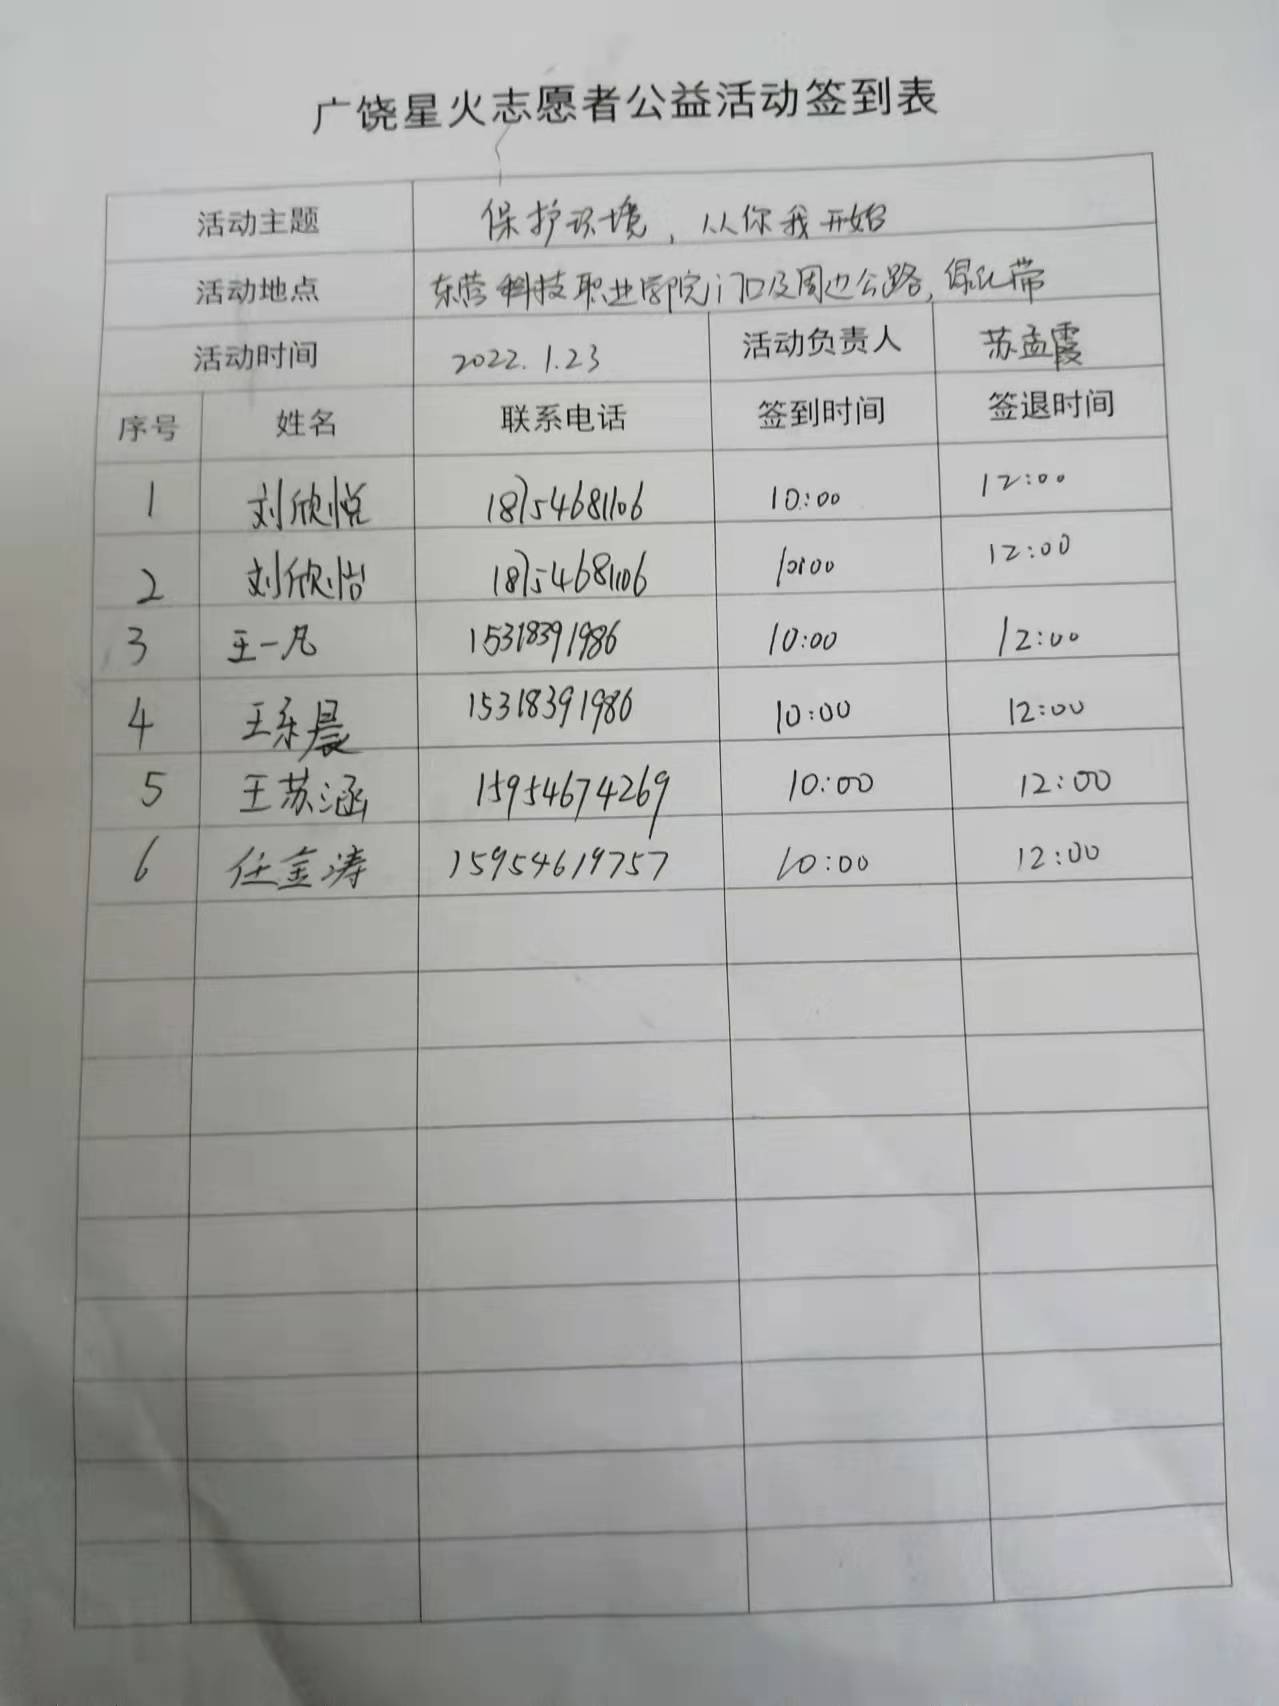 广饶星火志愿者公益活动签到表
活动主题 保护环境，从你我开始
活动地点 东营科技职业学院门口及周边公路，绿化带
活动时间 2022.1.23 活动负责人 苏孟霞
序号 姓名 联系电话 签到时间 签退时间
1 刘欣悦 18754681106 10:00 12:00
2 刘欣怡 18754681106 10:00 12:00
3 王一凡 15318391986 10:00 12:00
4 王乐晨 15318391986 10:00 12:00
5 王苏涵 15954674269 10:00 12:00
6 任金涛 15954619757 10:00 12:00